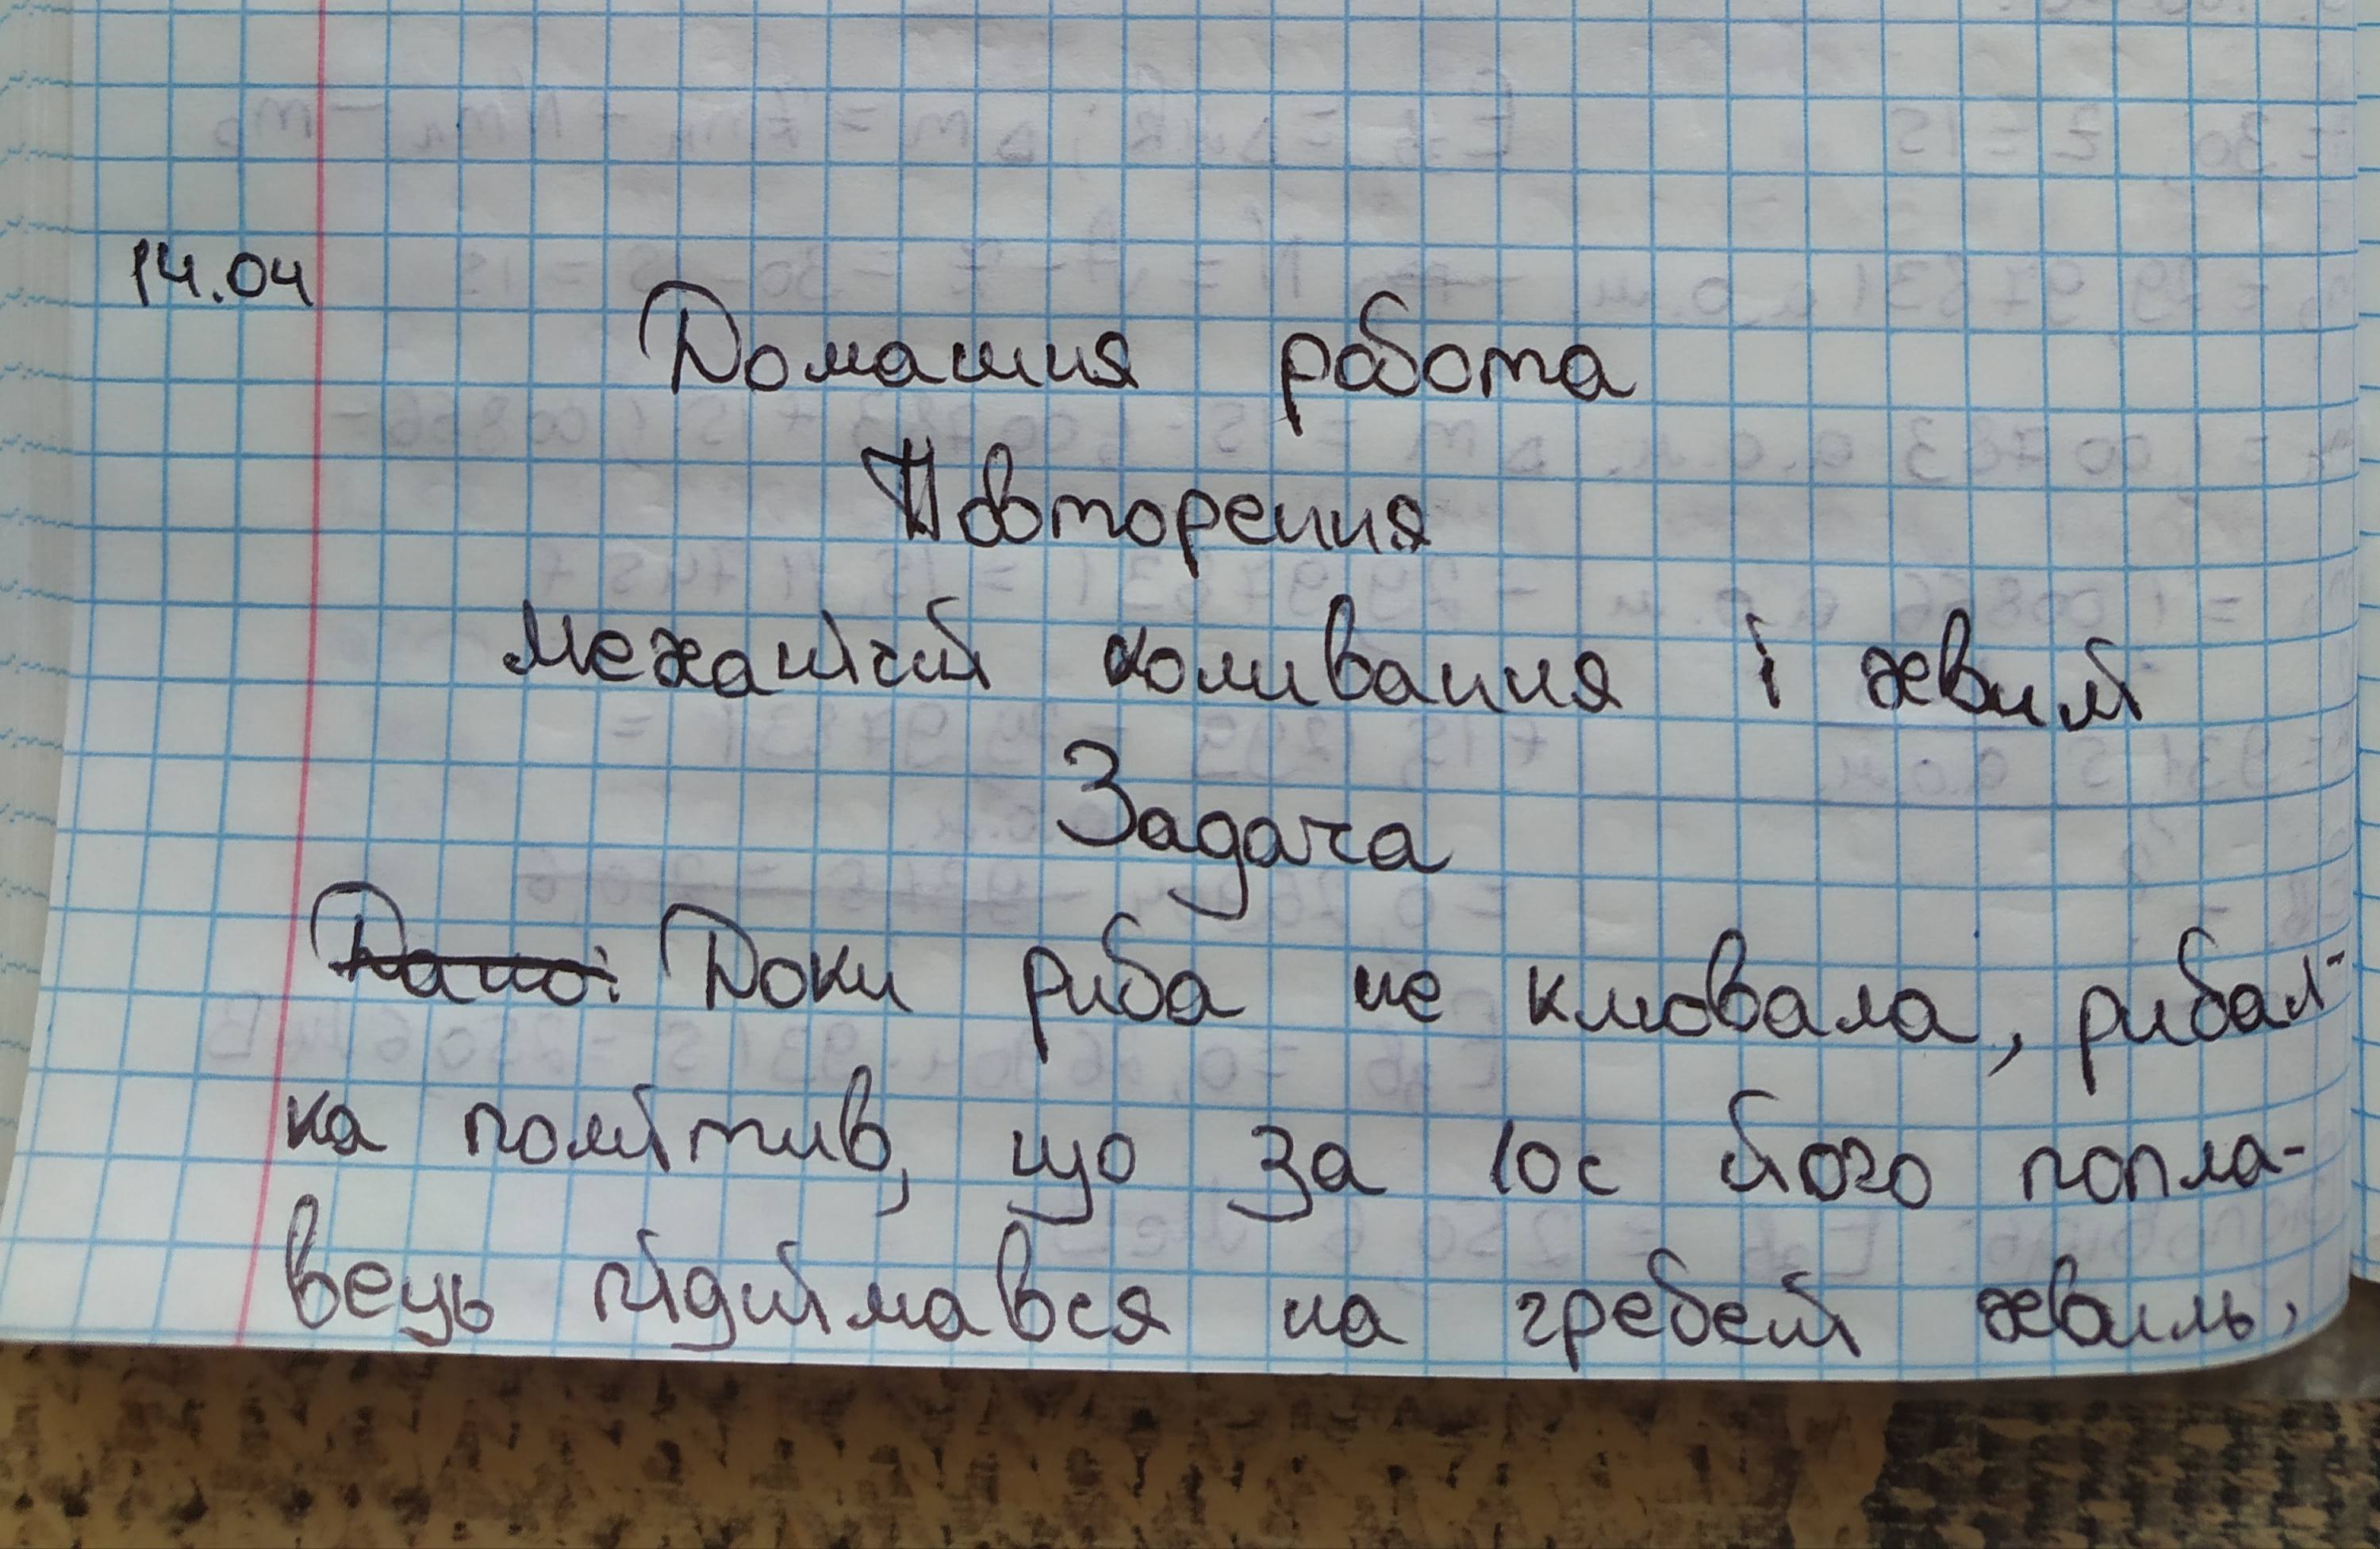 14.04
Домашня робота
Повторення
Механічні коливання і хвилі
Задача
Дано: Доки риба не клювала, рибал-
ка помітив, що за 10с його попла-
вець підіймався на гребені хвиль,